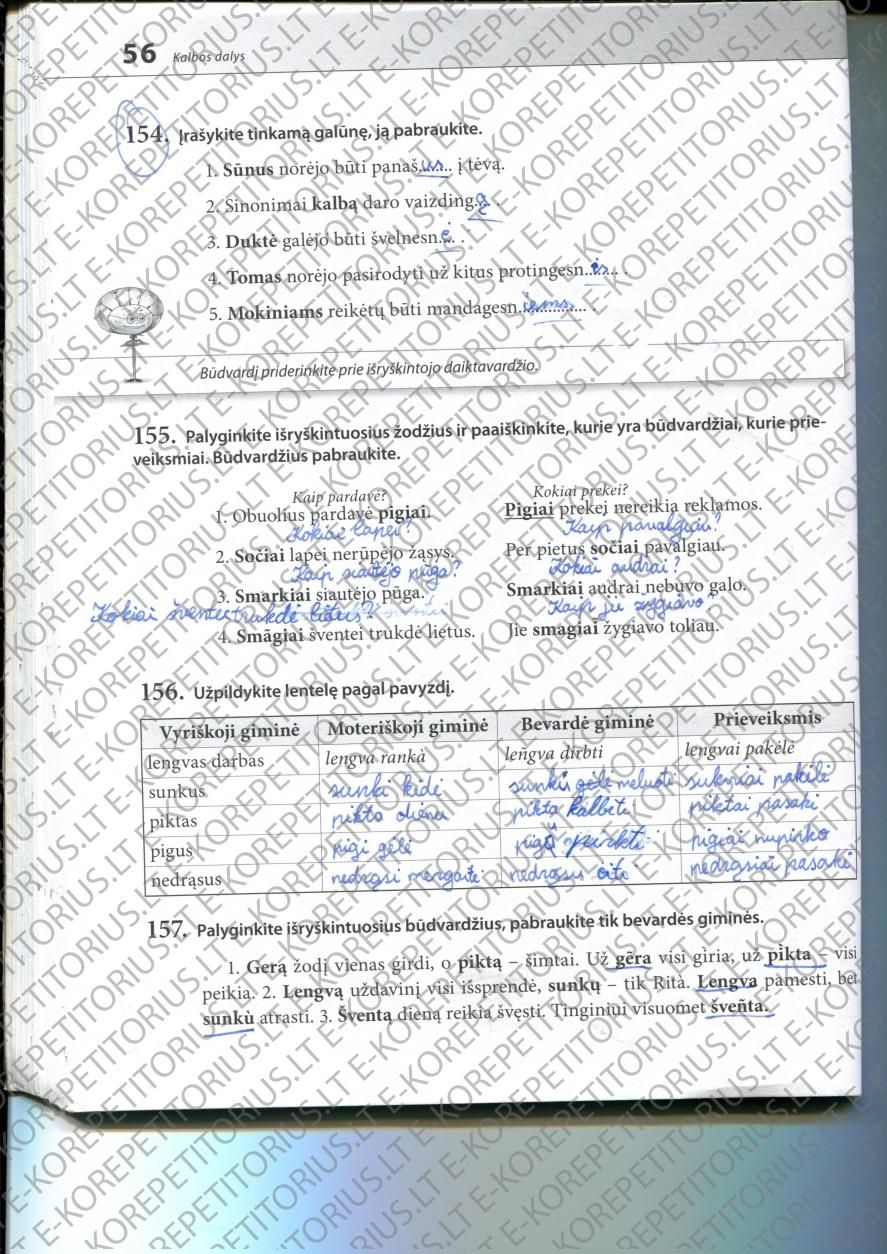 56 Kalbos dalys
154. Įrašykite tinkamą galūnę, ją pabraukite.
1. Sūnus norėjo būti panaš..us.. į tėvą.
2. Sinonimai kalbą daro vaizding.ą. .
3. Duktė galėjo būti švelnesn.ė.. .
4. Tomas norėjo pasirodyti už kitus protingesn..is... .
5. Mokiniams reikėtų būti mandagesn..iems.. .
Būdvardį priderinkite prie išryškintojo daiktavardžio.
155. Palyginkite išryškintuosius žodžius ir paaiškinkite, kurie yra būdvardžiai, kurie prie-
veiksmiai. Būdvardžius pabraukite.
Kaip pardavė? Kokiai prekei?
1. Obuolius pardavė pigiai. Pigiai prekei nereikia reklamos.
Kokiai lapei? Kaip pavalgiau?
2. Sočiai lapei nerūpėjo žąsys. Per pietus sočiai pavalgiau.
Kaip siautėjo pūga? Kokiai audrai?
3. Smarkiai siautėjo pūga. Smarkiai audrai nebuvo galo.
Kokiai šventei trukdė lietus? Kaip jie žygiavo
4. Smagiai šventei trukdė lietus. Jie smagiai žygiavo toliau.
156. Užpildykite lentelę pagal pavyzdį.
Vyriškoji giminė Moteriškoji giminė Bevardė giminė Prieveiksmis
lengvas darbas lengva rankà leñgva dirbti lengvai pakėlė
sunkus sunki kėdė sunku gėlė meluoti sukniai pakėlė
piktas pikta diena pikta kalbėti piktai pasakė
pigus pigi gėlė pigu pirkti pigiai nupirko
nedrąsus nedrąsi mergaitė nedrąsu eiti nedrąsiai pasakė
157. Palyginkite išryškintuosius būdvardžius, pabraukite tik bevardės giminės.
1. Gerą žodį vienas girdi, o piktą – šimtai. Už gẽra visi giria, už pìkta – visi
peikia. 2. Lengvą uždavinį visi išsprendė, sunkų – tik Rita. Leñgva pamesti, bet
sunkù atrasti. 3. Šventą dieną reikia švęsti. Tinginiui visuomet šveñta.
E-KOREPETITORIUS.LT